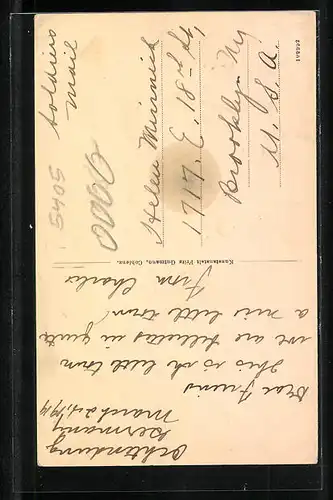 Ochtendung
Germany
March 24, 1919
Dear Friend
This is th little town
we are billeted in quite
a nice little town!
From Charlie
Kunstanstalt Fritz Gutmann, Coblenz.
Soldiers
Mail
5405
Helen
1717 E. 18th St,
Brooklyn Ny
U. S. A.